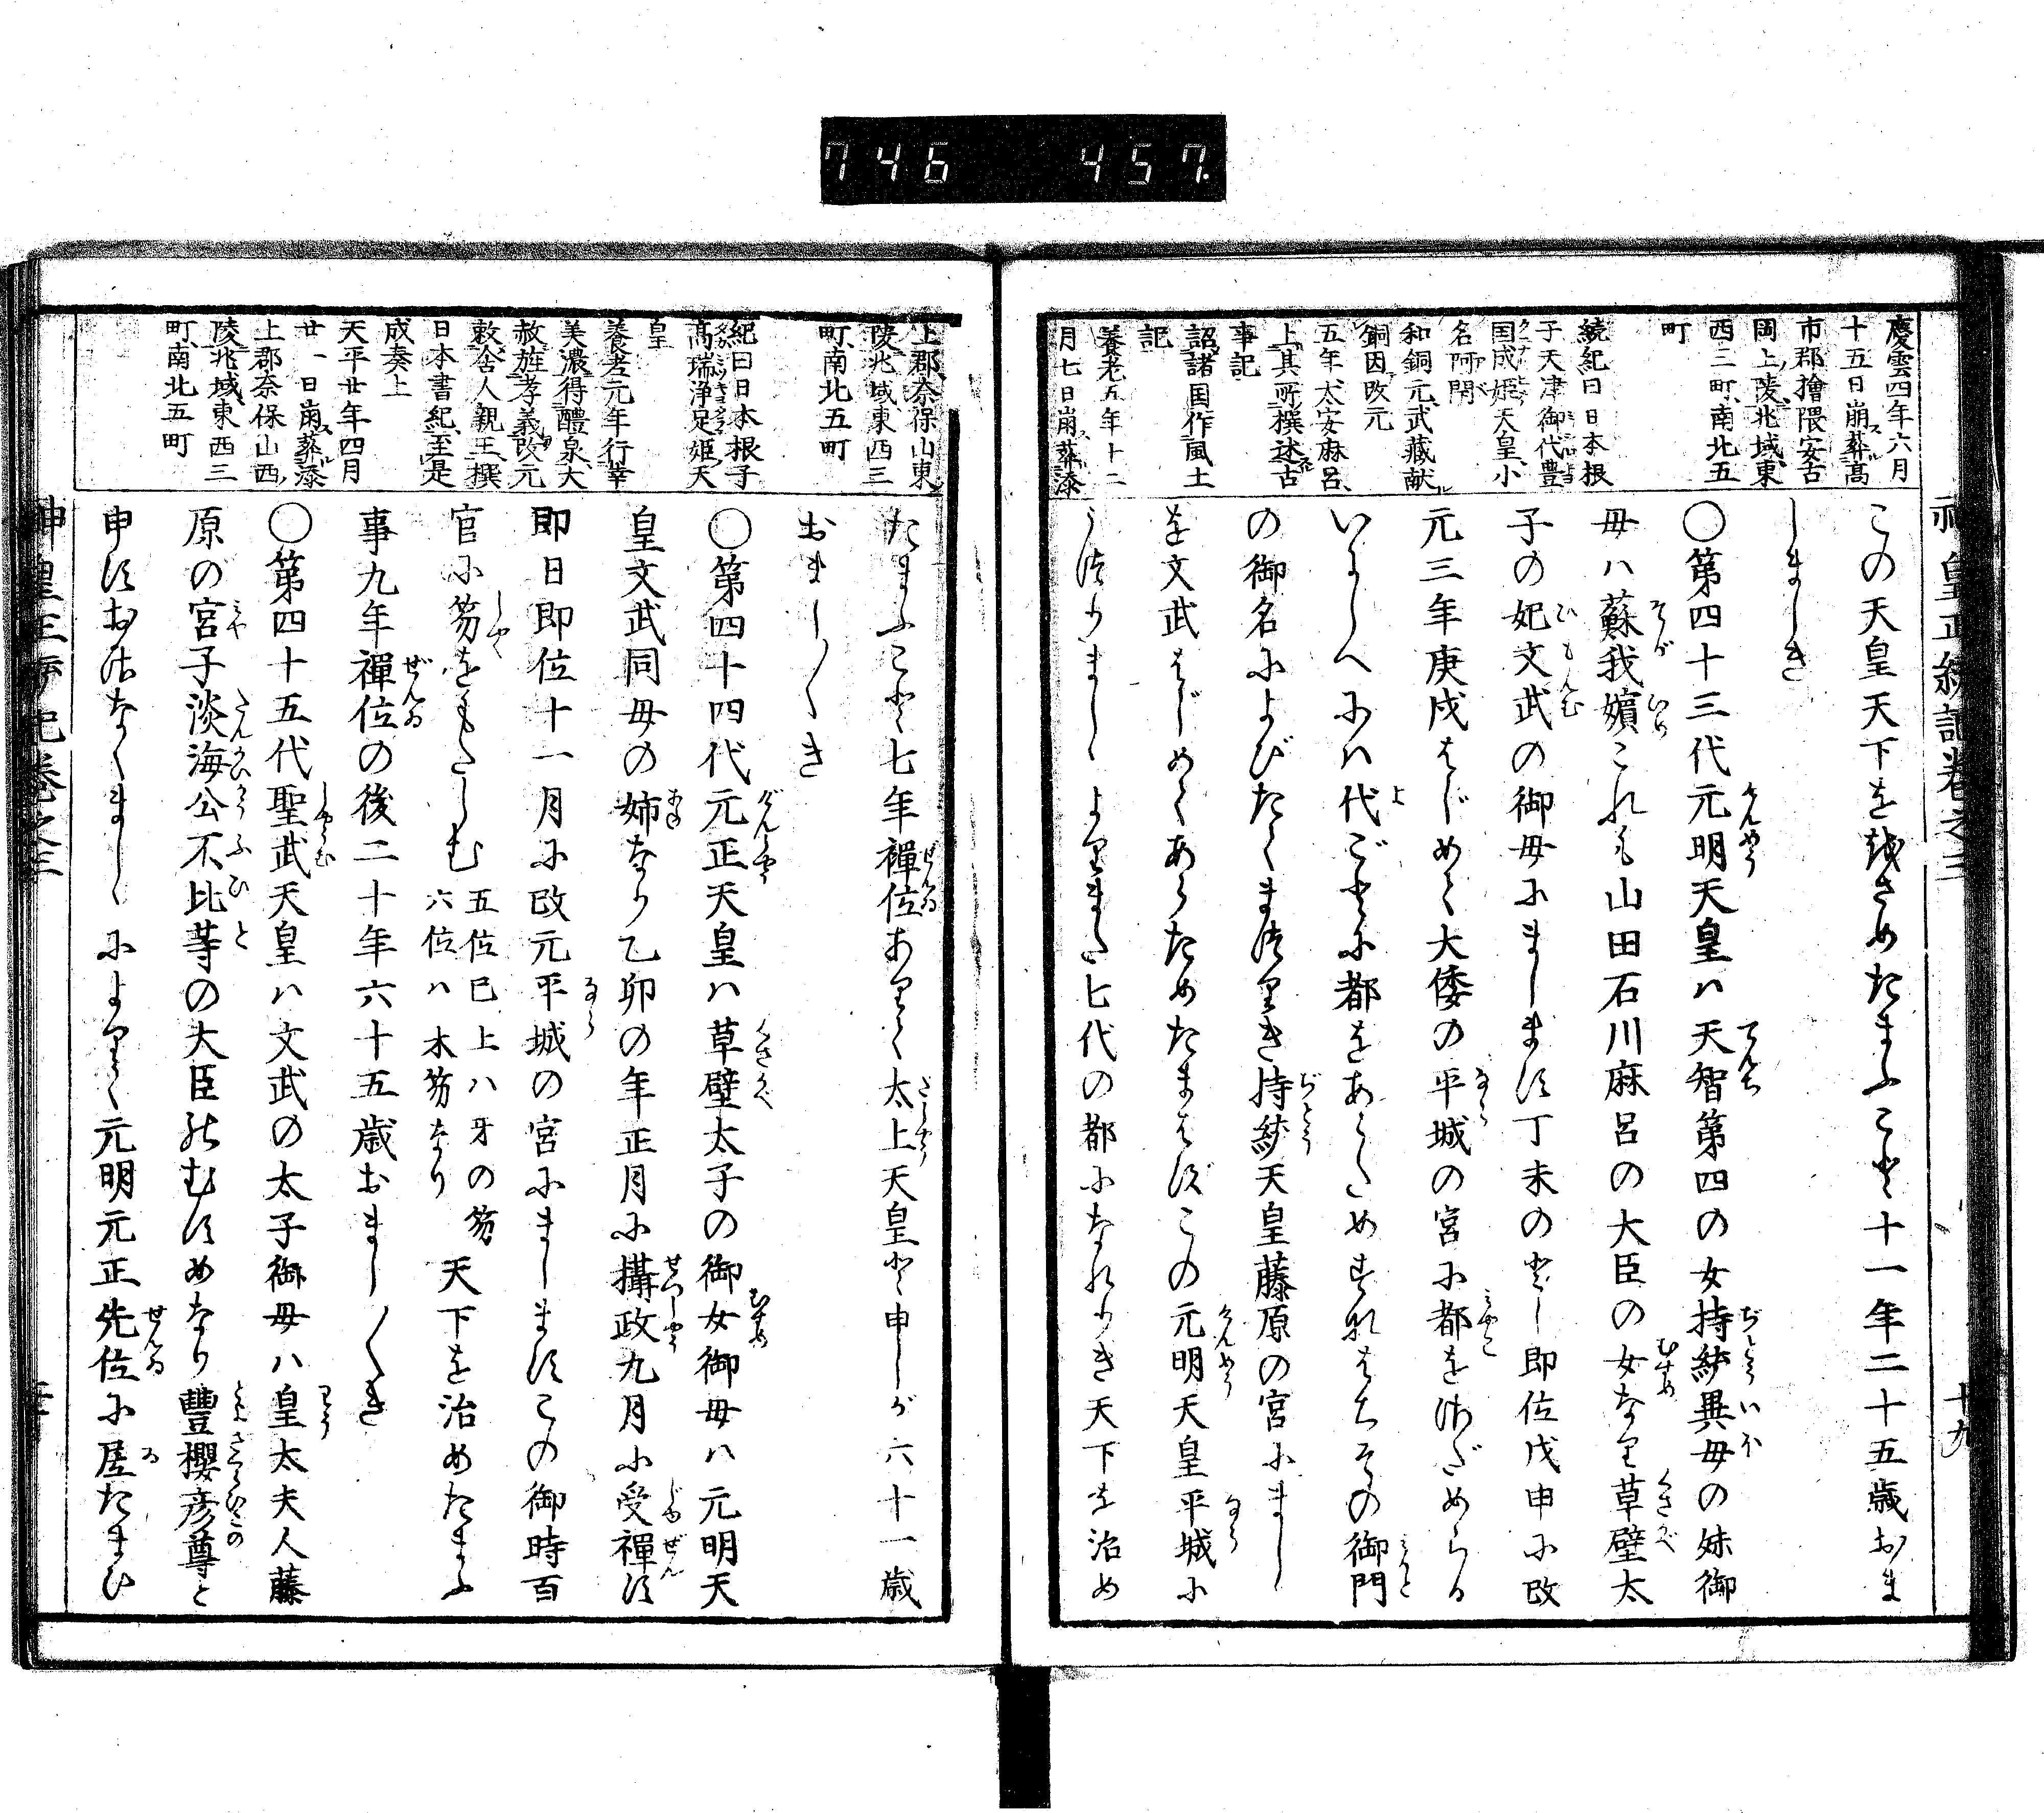 746 457.
神皇正統記巻之三 十九
慶雲四年六月
十五日崩葬高
市郡檜隈安古
岡上陵兆域東
西三町南北五
町
続紀曰日本根
子天津御代豊
国成姫天皇小
名阿閇
和銅元武藏献
銅因改元
五年太安麻呂
上其所撰述古
事記
詔諸国作風土
記
養老五年十二
月七日崩葬添
この天皇天下を越さめたまふこと十一年二十五歳おま
しましき
〇第四十三代元明天皇ハ天智第四の女持統異母の妹御
母ハ蘇我嬪これも山田石川麻呂の大臣の女なり草壁太
子の妃文武の御母にまします丁未のとし即位戊申に改
元三年庚戌はじめて大倭の平城の宮に都をさだめらる
いにしへにハ代ごとに都をあらためすなはちその御門
の御名によびたてまつりき持統天皇藤原の宮にましし
を文武はじめてあらためたまはずこの元明天皇平城に
うつりましゝよりまた七代の都になれりき天下を治め
上郡奈保山東
陵兆域東西三
町南北五町
紀曰日本根子
高瑞浄足姫天
皇
養老元年行幸
美濃得醴泉大
赦旌孝義改元
敕舎人親王撰
日本書紀至是
成奏上
天平廿年四月
廿一日崩葬添
上郡奈保山西
陵兆域東西三
町南北五町
たまふこと七年禅位ありて太上天皇と申しが六十一歳
おまし〱き
〇第四十四代元正天皇ハ草壁太子の御女御母ハ元明天
皇文武同母の姉なり乙卯の年正月に摂政九月に受禅す
即日即位十一月に改元平城の宮にましますこの御時百
官に笏をもたしむ五位已上ハ牙の笏六位ハ木笏なり天下を治めたまふ
事九年禅位の後二十年六十五歳おまし〱き
〇第四十五代聖武天皇ハ文武の太子御母ハ皇太夫人藤
原の宮子淡海公不比等の大臣のむすめなり豐櫻彦尊と
申すおさなくましゝによりて元明元正先位に居たまひ